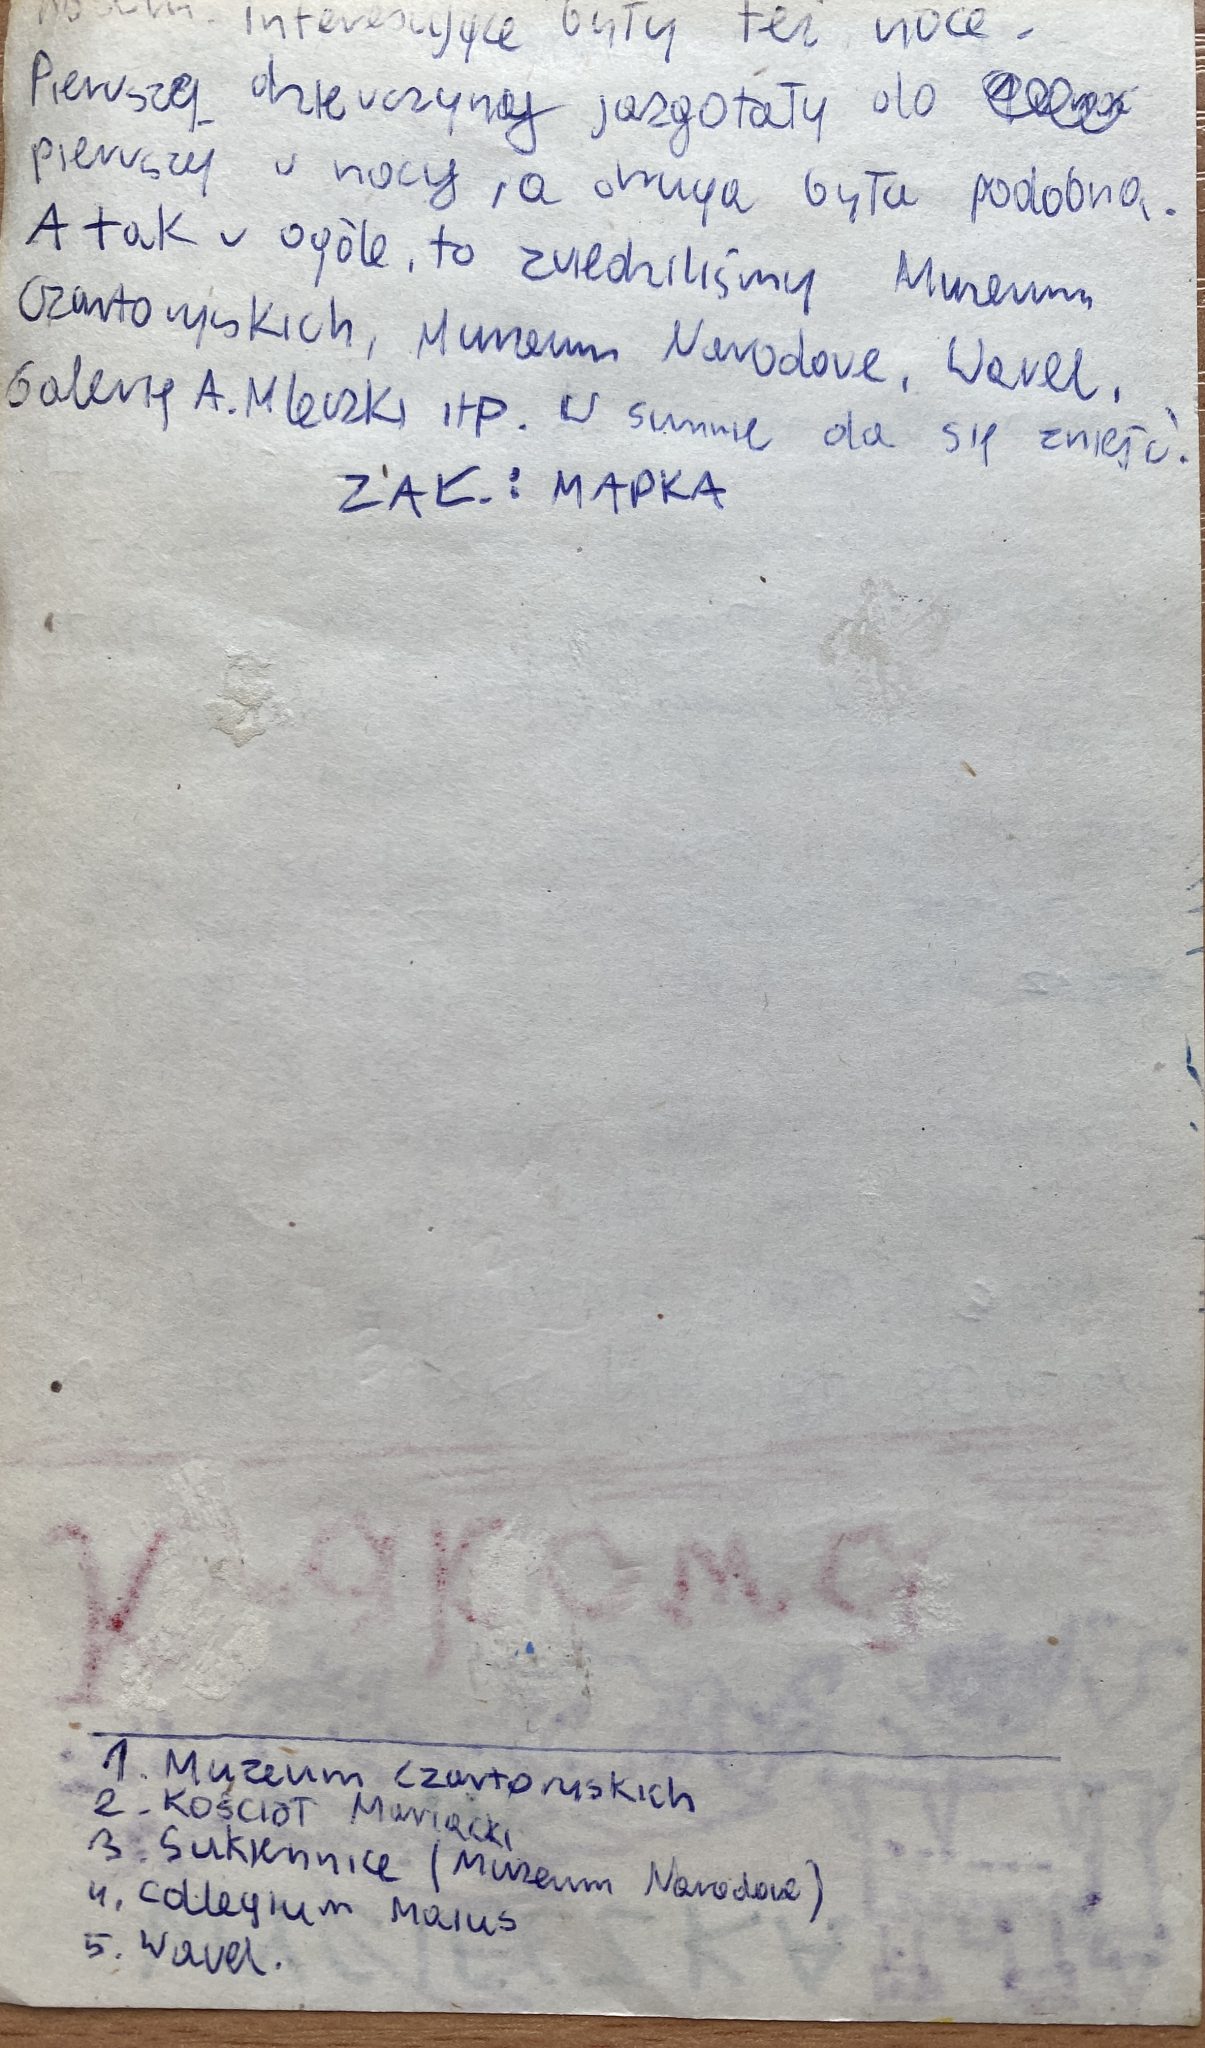 Interesujące były też noce.
Pierwszej dziewczyny jazgotały do
pierwszej w nocy, a druga była podobna.
A tak w ogóle, to zwiedziliśmy Muzeum
Czartoryskich, Muzeum Narodowe, Wawel,
Galerię A. Mleczki itp. W sumie da się znieść.
ZAŁ.: MAPKA
Krakowa
1. Muzeum Czartoryskich
2. Kościół Mariacki
3. Sukiennice (Muzeum Narodowe)
4. Collegium Maius
5. Wawel.